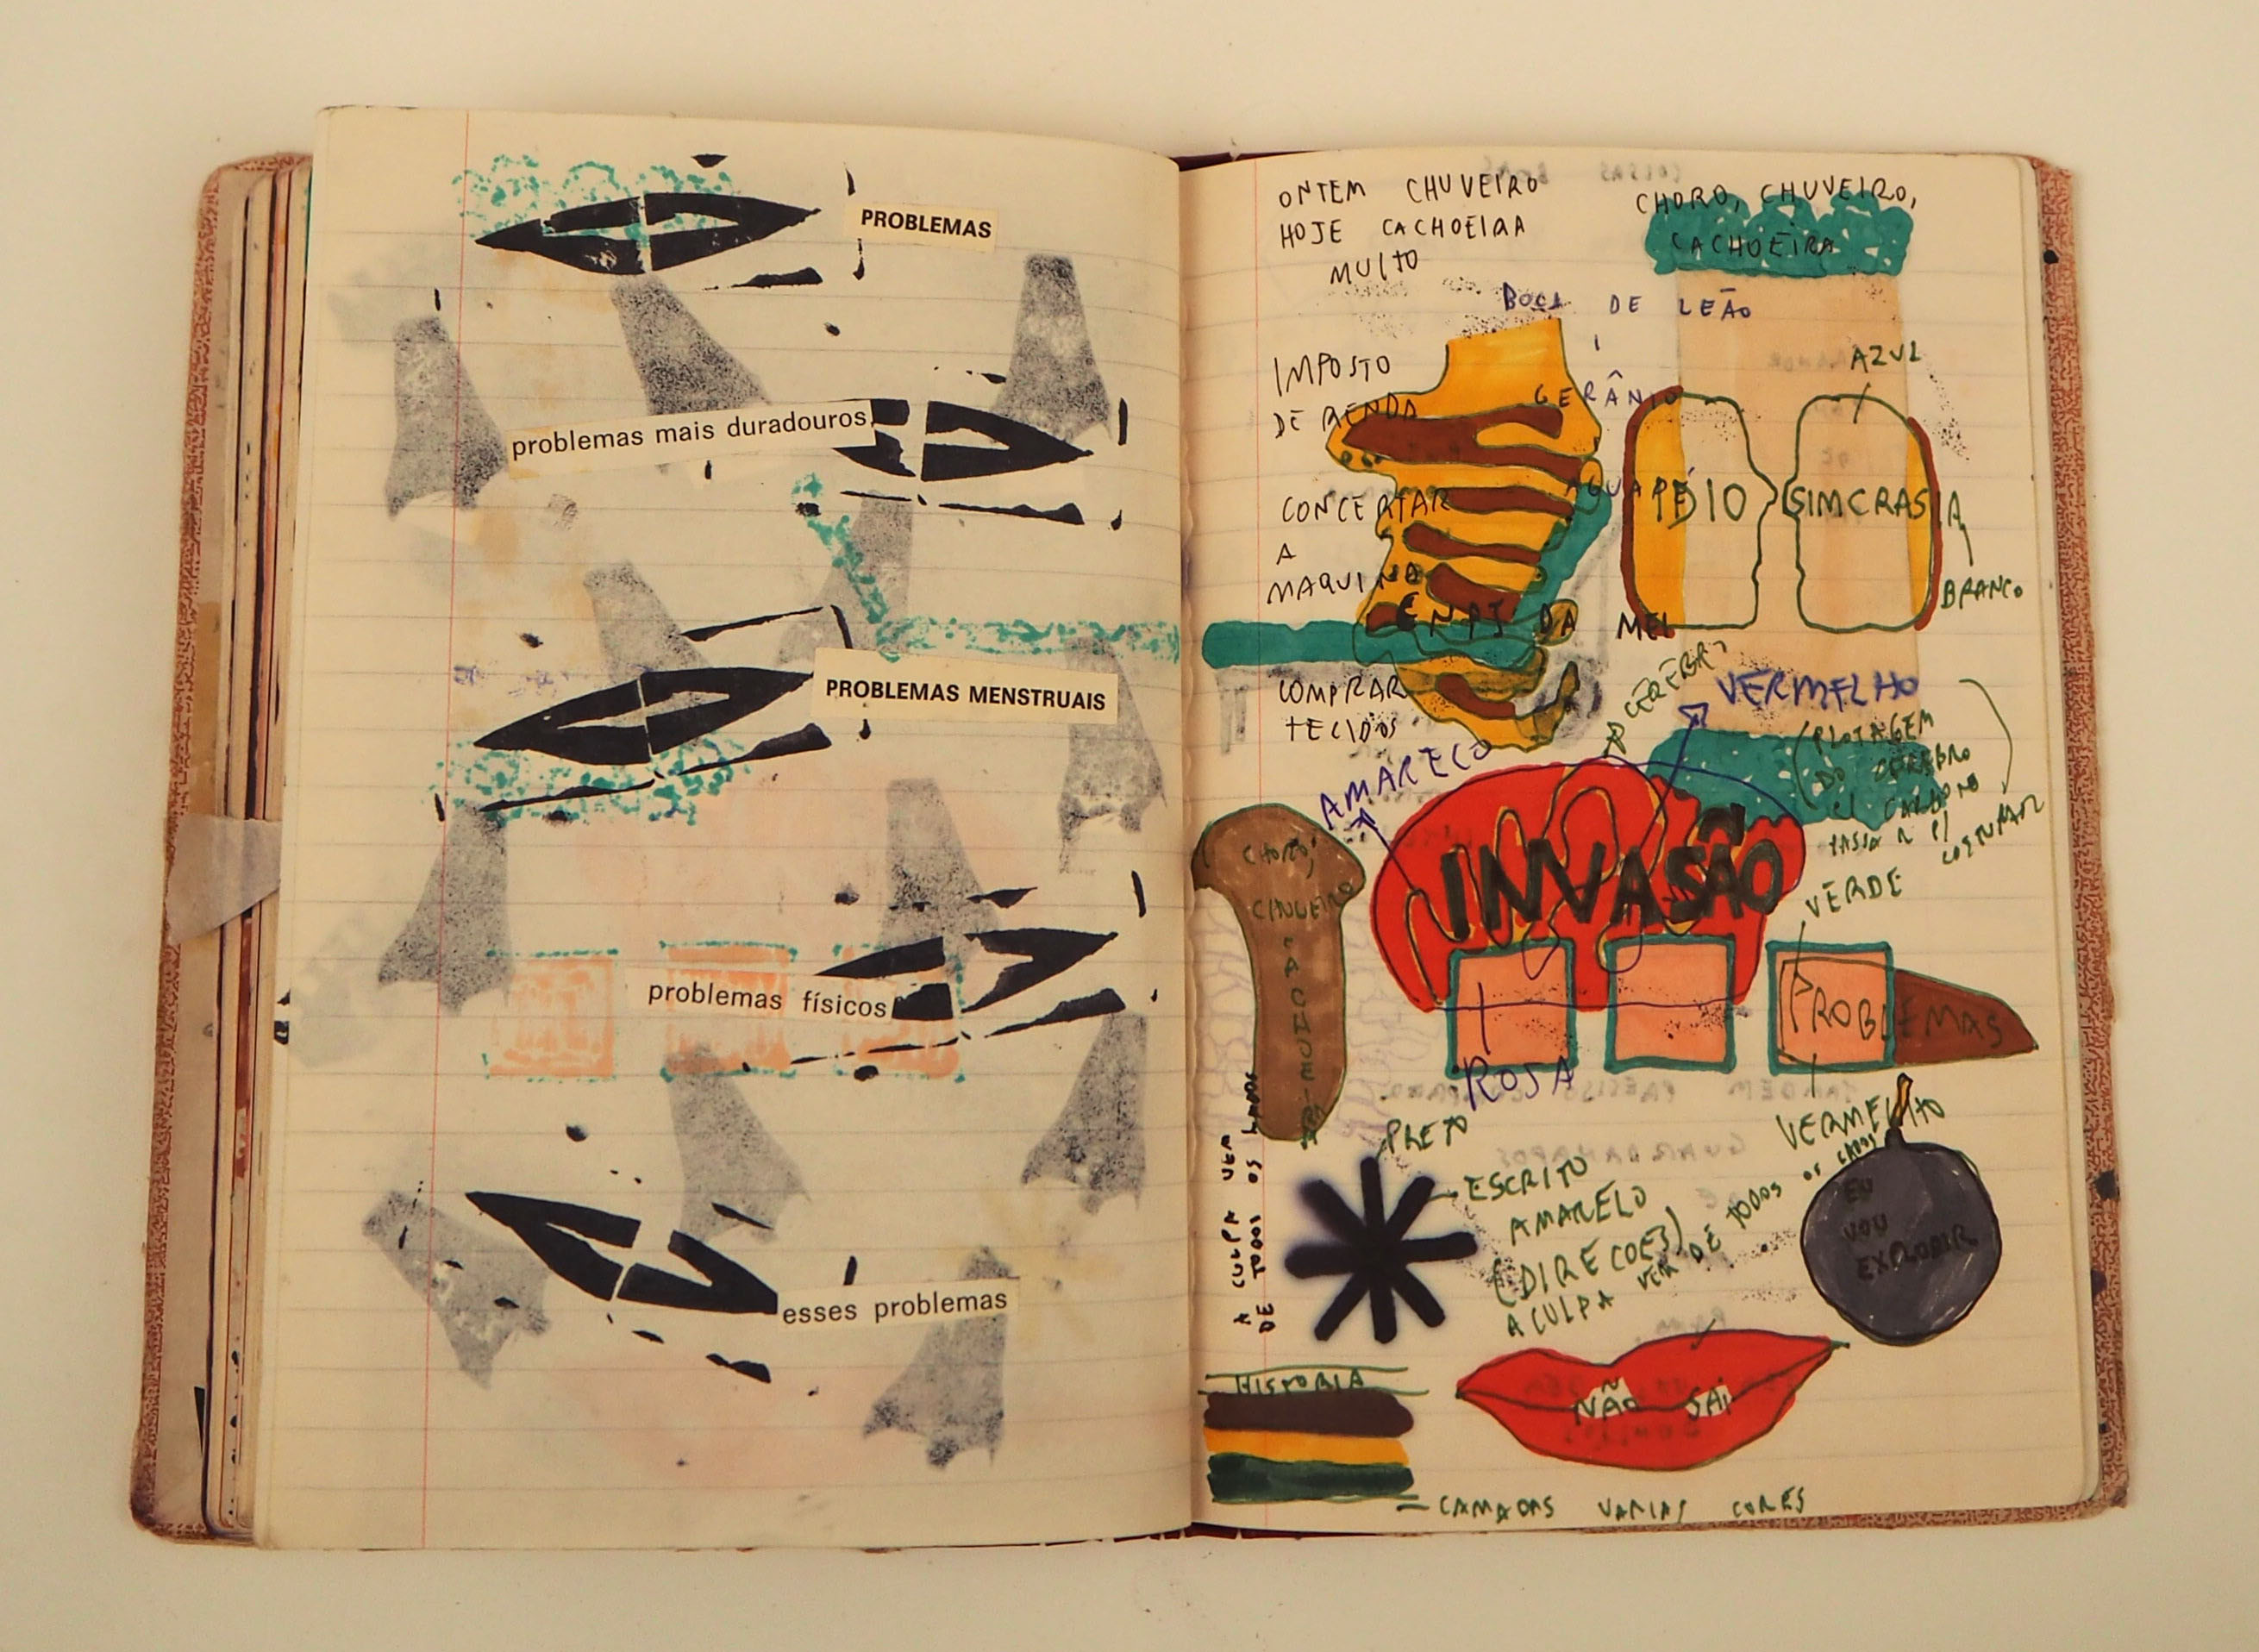 PROBLEMAS
problemas mais duradouros,
PROBLEMAS MENSTRUAIS
problemas físicos
esses problemas
ONTEM CHUVEIRO
HOJE CACHOEIRA
MUITO
CHORO, CHUVEIRO,
CACHOEIRA
BOCA DE LEÃO
GERÂNIO
AGUAPÉ
IMPOSTO
DE RENDA
CONCERTAR
A
MAQUINA
DA MEL
COMPRAR
TECIDOS
AZUL
IDIO SIMCRASIA
BRANCO
CÉREBRO
VERMELHO
(PLOTAGEM
DO CÉREBRO
C/ CARBONO
PASSAR P/
COSTURAR
AMARELO
INVASÃO
VERDE
CHORO,
CHUVEIRO
CACHOEIRA
PROBLEMAS
ROSA
VERMELHO
PRETO
ESCRITO
AMARELO
(DIRECOES)
A CULPA VEM DE TODOS OS LADOS
A CULPA VEM
DE TODOS OS LADOS
EU
VOU
EXPLODIR
HISTORIA
NÃO SAI
= CAMADAS VARIAS CORES